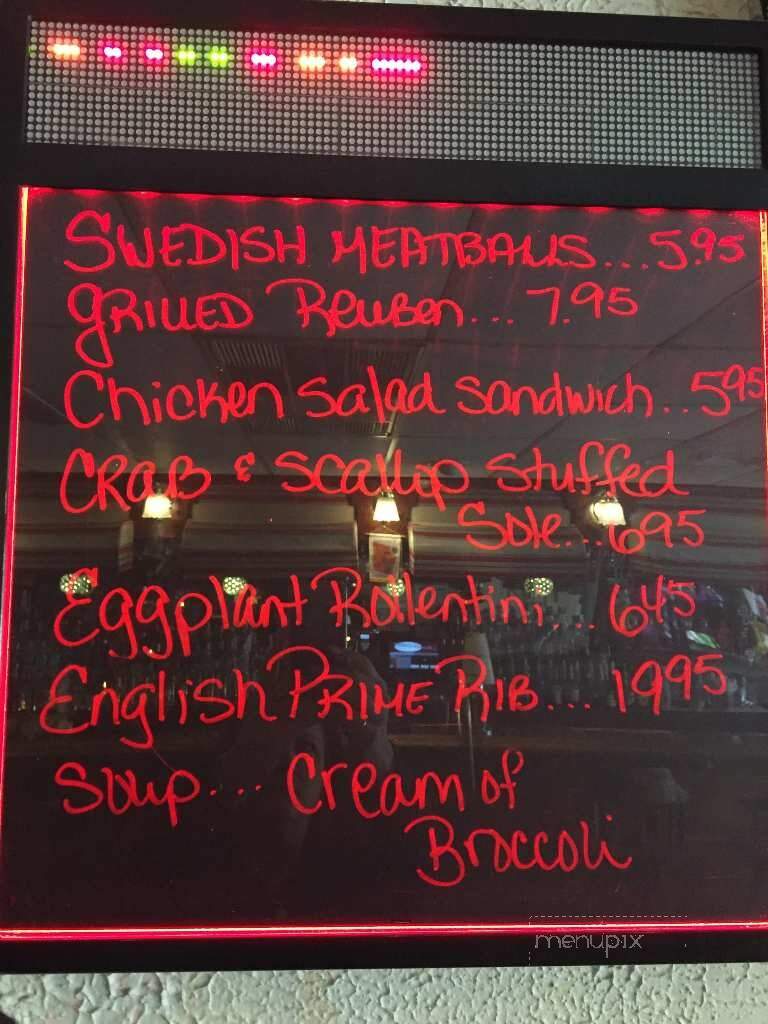 SWEDISH MEATBALLS...5.95
GRILLED Reuben... 7.95
Chicken salad sandwich..595
CRAB & Scallop stuffed
Sole...695
Eggplant Rollentini... 645
English PRIME RIB.... 1995
Soup.... Cream of
Broccoli
menupix